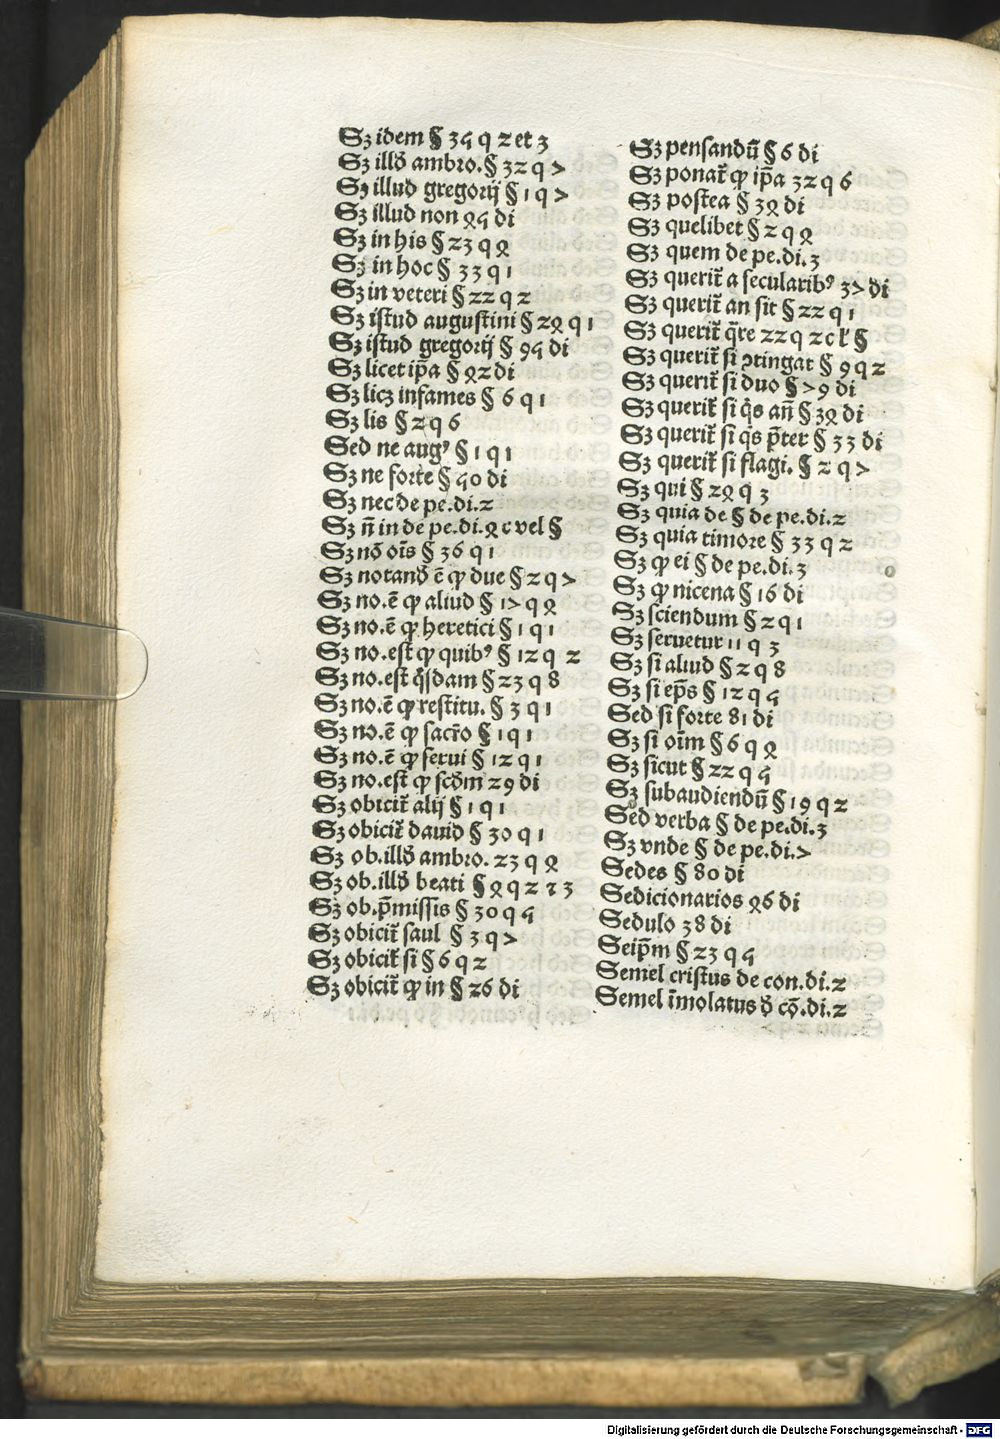 Sꝫ idem § 35 q 2 et 3
Sꝫ illđ ambro. § 32 q 7
Sꝫ illud gregorij § 1 q 7
Sꝫ illud non 45 di
Sꝫ in his § 23 q 4
Sꝫ in hoc § 33 q 1
Sꝫ in veteri § 22 q 2
Sꝫ istud augustini § 24 q 1
Sꝫ istud gregorij § 95 di
Sꝫ licet ip̄a § 42 di
Sꝫ licꝫ infames § 6 q 1
Sꝫ lis § 2 q 6
Sed ne augꝰ § 1 q 1
Sꝫ ne forte § 50 di
Sꝫ nec de pe.di.2
Sꝫ n̄ in de pe.di.4 c vel §
Sꝫ nō oīs § 36 q 1
Sꝫ notanđ ē ꝙ due § 2 q 7
Sꝫ no.ē ꝙ aliud § 17 q 4
Sꝫ no.ē ꝙ heretici § 1 q 1
Sꝫ no.est ꝙ quibꝰ § 12 q 2
Sꝫ no.est q̄sdam § 23 q 8
Sꝫ no.ē ꝙ restitu. § 3 q 1
Sꝫ no.ē ꝙ sacr̄o § 1 q 1
Sꝫ no.ē ꝙ serui § 12 q 1
Sꝫ no.est ꝙ scđm 29 di
Sꝫ obicit̄ alij § 1 q 1
Sꝫ obicit̄ dauid § 30 q 1
Sꝫ ob.illđ ambro. 23 q 4
Sꝫ ob.illđ beati § 4 q 2 ⁊ 3
Sꝫ ob.p̄missis § 30 q 5
Sꝫ obicit̄ saul § 3 q 7
Sꝫ obicit̄ si § 6 q 2
Sꝫ obicit̄ ꝙ in § 26 di
Sꝫ pensandū § 6 di
Sꝫ ponat̄ ꝙ ip̄a 32 q 6
Sꝫ postea § 34 di
Sꝫ quelibet § 2 q 4
Sꝫ quem de pe.di.3
Sꝫ querit̄ a secularibꝰ 37 di
Sꝫ querit̄ an sit § 22 q 1
Sꝫ querit̄ q̄re 22 q 2 c ł §
Sꝫ querit̄ si ꝯtingat § 9 q 2
Sꝫ querit̄ si duo § 79 di
Sꝫ querit̄ si q̄s an̄ § 34 di
Sꝫ querit̄ si q̄s p̄ter § 33 di
Sꝫ querit̄ si flagi. § 2 q 7
Sꝫ qui § 24 q 3
Sꝫ quia de § de pe.di.2
Sꝫ quia timore § 33 q 2
Sꝫ ꝙ ei § de pe.di.3
Sꝫ ꝙ nicena § 16 di
Sꝫ sciendum § 2 q 1
Sꝫ seruetur 11 q 3
Sꝫ si aliud § 2 q 8
Sꝫ si ep̄s § 12 q 5
Sed si forte 81 di
Sꝫ si oīm § 6 q 4
Sꝫ sicut § 22 q 5
Sꝫ subaudiendū § 19 q 2
Sed verba § de pe.di.3
Sꝫ vnde § de pe.di.7
Sedes § 80 di
Sedicionarios 46 di
Sedulo 38 di
Seip̄m § 23 q 5
Semel cristus de con.di.2
Semel īmolatus đ cō.di.2
Digitalisierung gefördert durch die Deutsche Forschungsgemeinschaft - DFG